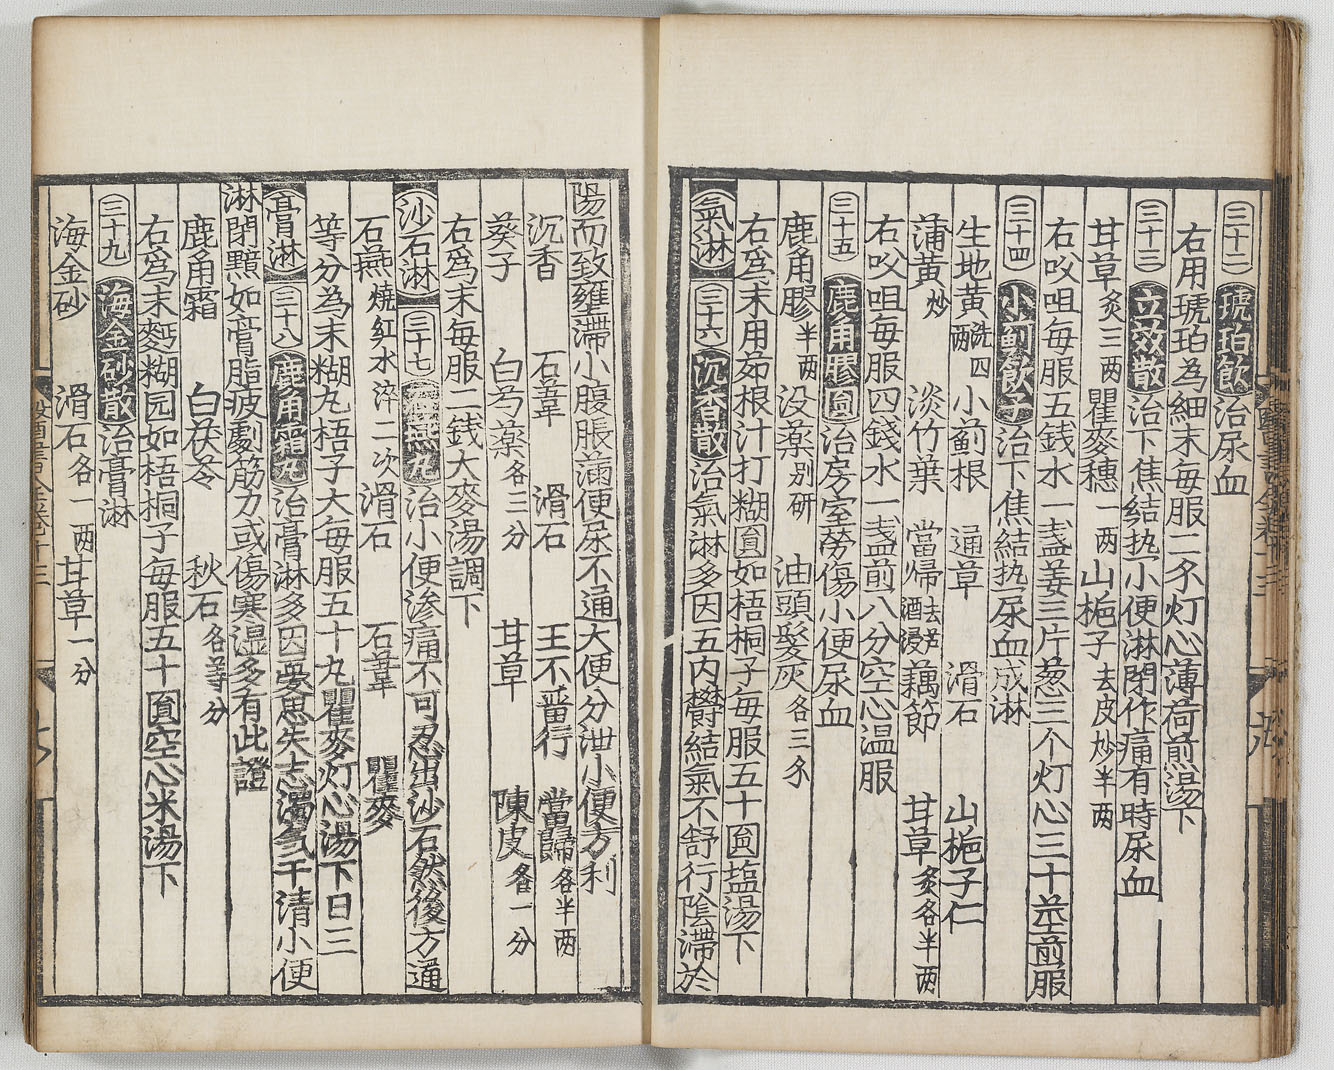 三十二 琥珀飲 治尿血
右用琥珀為細末每服二錢灯心薄荷煎湯下
三十三 立效散 治下焦結热小便淋閉作痛有時尿血
甘草 炙三两 瞿麥穗 一两 山梔子 去皮炒半两
右㕮咀每服五銭水一盏姜三片葱三个灯心三十莖煎服
三十四 小薊飲子 治下焦結热尿血成淋
生地黄 洗四两 小薊根 通草 滑石 山梔子仁
蒲黄 炒 淡竹葉 當帰 去芦酒浸 藕節 甘草 炙各半两
右㕮咀每服四錢水一盏煎八分空心温服
三十五 鹿角膠圓 治房室勞傷小便尿血
鹿角膠 半两 没薬 别研 油頭髮灰 各三錢
右為末用茆根汁打糊圓如梧桐子每服五十圓塩湯下
氣淋 三十六 沉香散 治氣淋多因五内欝結氣不舒行陰滯於
陽而致壅滯小腹脹滿便尿不通大便分泄小便方利
沉香 石葦 滑石 王不畱行 當歸 各半两
葵子 白芍薬 各三分 甘草 陳皮 各一分
右為末每服二銭大麥湯調下
沙石淋 三十七 石燕丸 治小便渗痛不可忍出沙石然後方通
石燕 燒紅水淬二次 滑石 石葦 瞿麥
等分為末糊丸梧子大每服五十丸瞿麥灯心湯下日三
膏淋 三十八 鹿角霜丸 治膏淋多因憂思失志濁氣干清小便
淋閉黯如膏脂疲劇筋力或傷寒湿多有此證
鹿角霜 白茯苓 秋石 各等分
右為末麪糊圆如梧桐子每服五十圓空心米湯下
三十九 海金砂散 治膏淋
海金砂 滑石 各一两 甘草 一分